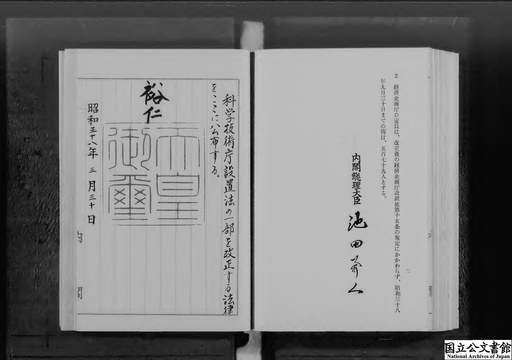 2　経済企画庁の定員は、改正後の経済企画庁設置法第十五条の規定にかかわらず、昭和三十八
年九月三十日までの間は、五百七十九人とする。
内閣総理大臣　池田勇人
科学技術庁設置法の一部を改正する法律
をここに公布する。
裕仁
天皇
御璽
昭和三十八年三月三十日
国立公文書館
National Archives of Japan